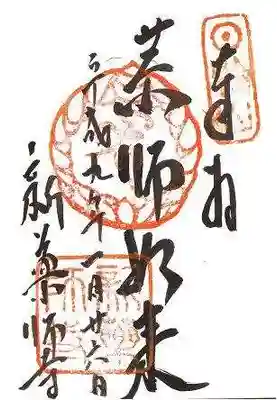 奉拝
薬師如来
平成九年一月廿六日
新薬師寺